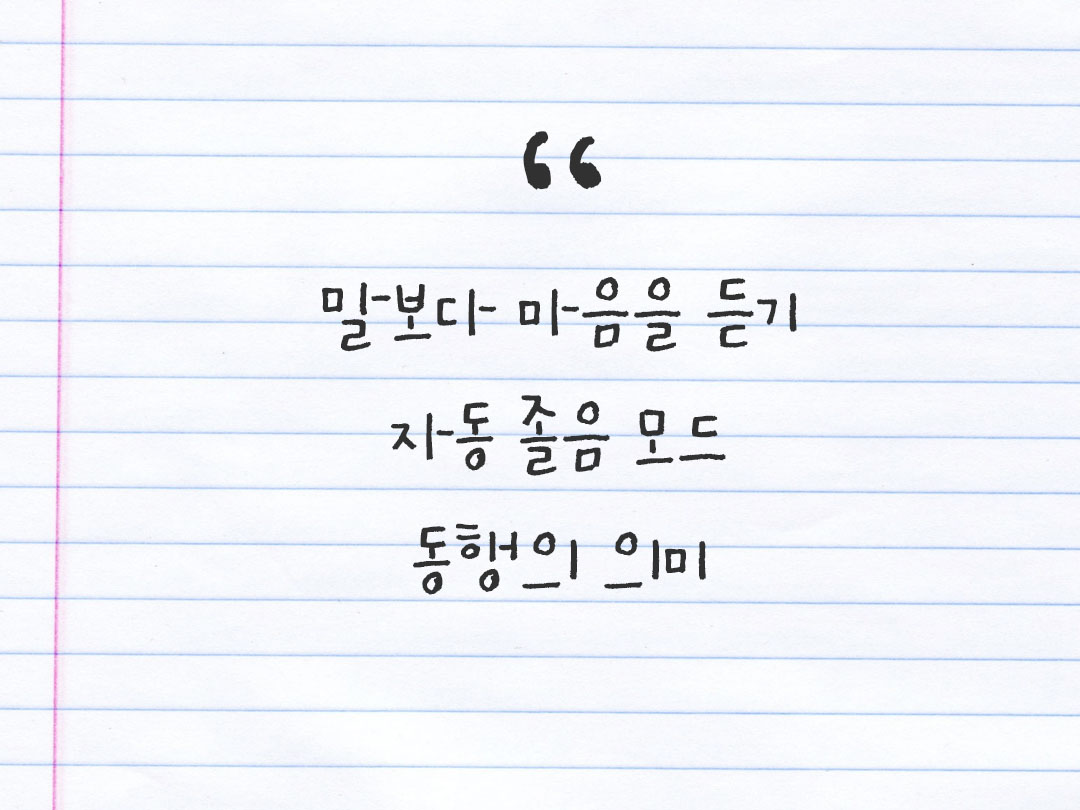 “
말보다 마음을 듣기
자동 졸음 모드
동행의 의미